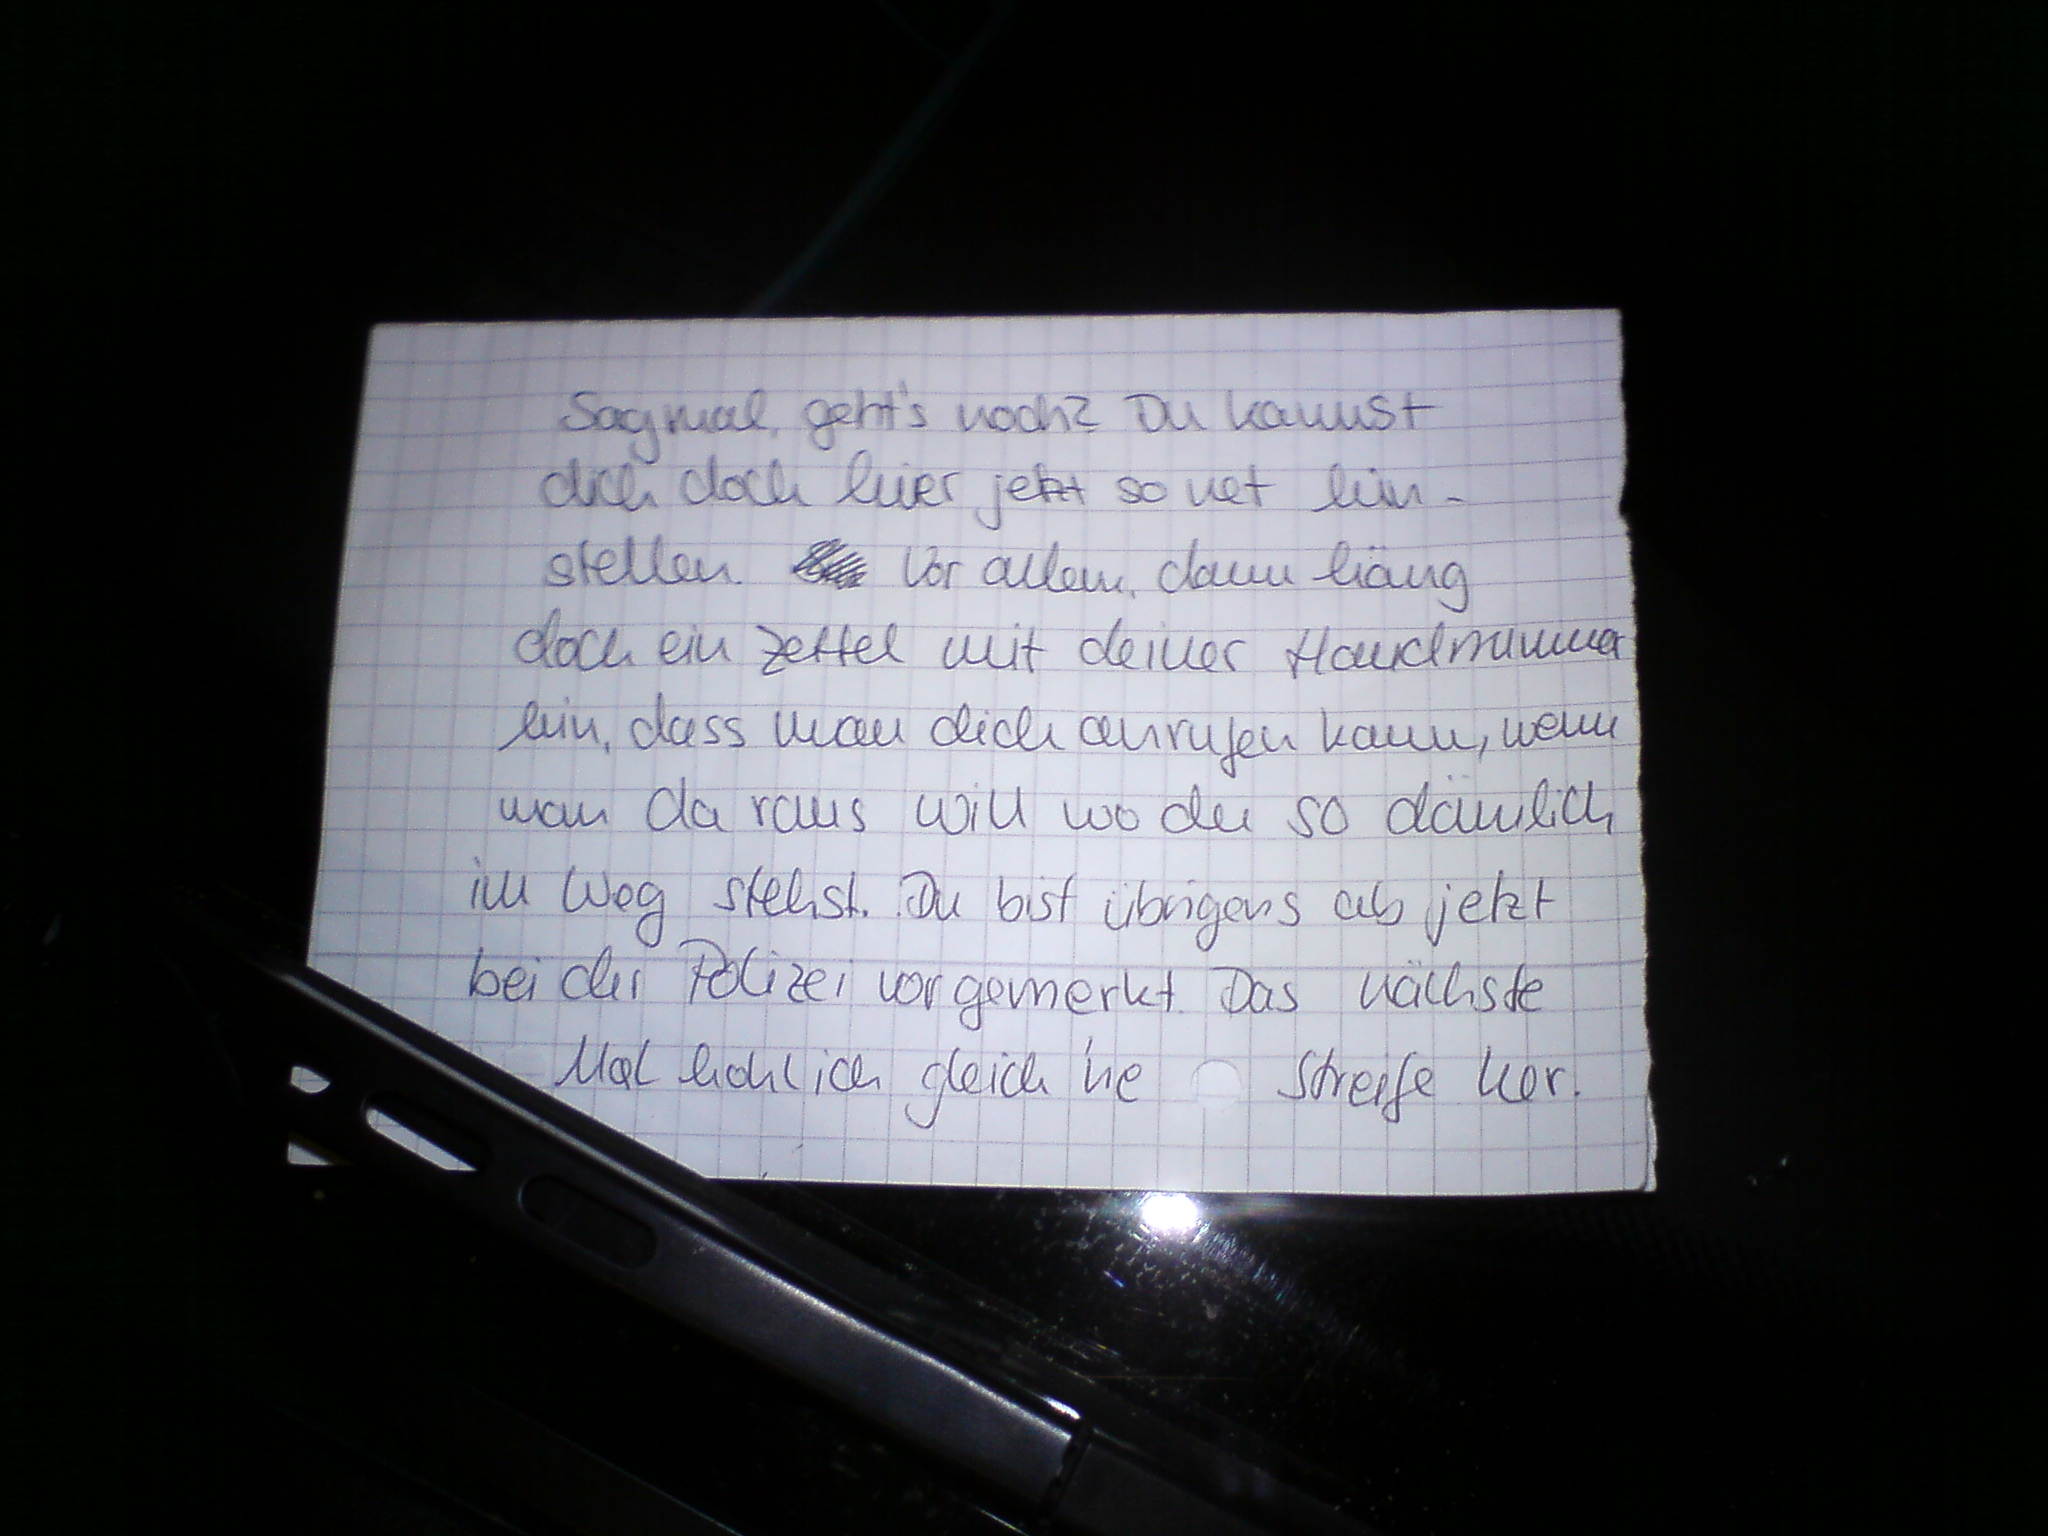 Sag mal, geht's noch? Du kannst
dich doch hier jetzt so net hin-
stellen. Vor allem, dann häng
doch ein Zettel mit deiner Handnummer
hin, dass man dich anrufen kann, wenn
man da raus will wo du so dämlich
im Weg stehst. Du bist übrigens ab jetzt
bei der Polizei vorgemerkt. Das nächste
Mal hohl ich gleich 'ne Streife her.